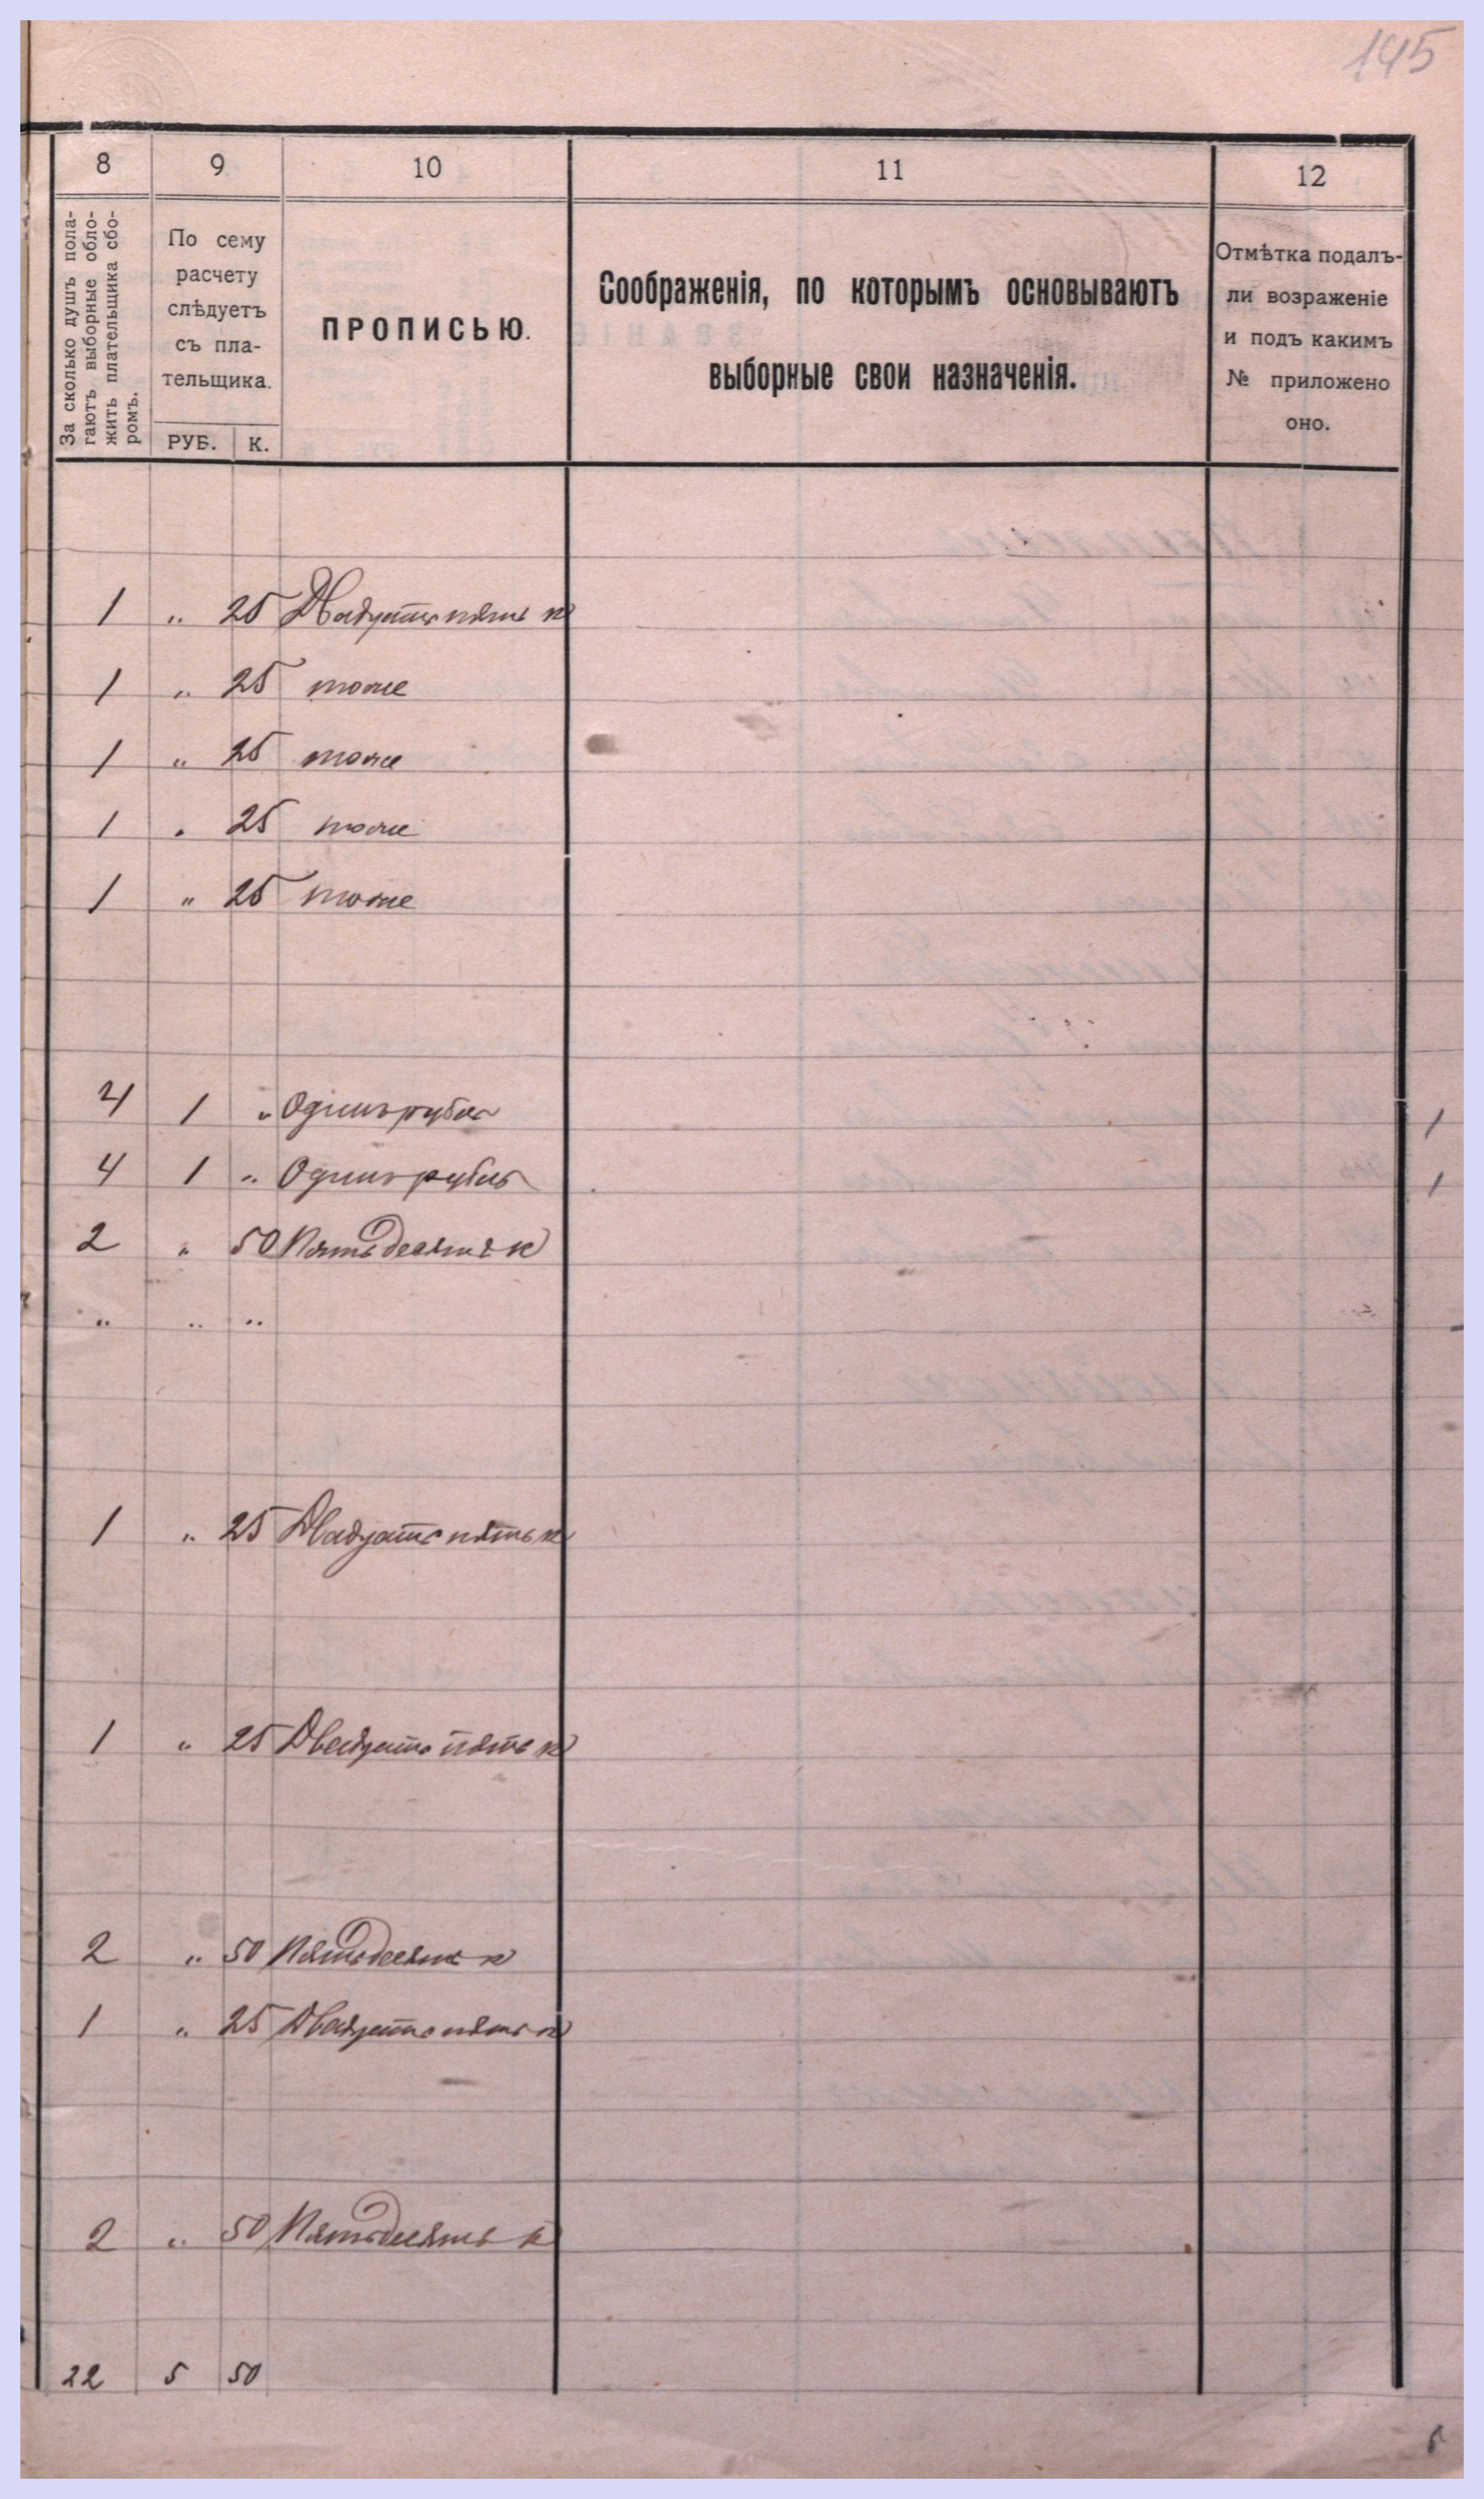 145
8 9 10 11 12
За сколько душъ пола-
гаютъ выборные обло-
жить плательщика сбо-
ромъ.
По сему
расчету
слѣдуетъ
съ пла-
тельщика.
РУБ. К.
ПРОПИСЬЮ.
Соображенія, по которымъ основываютъ
выборные свои назначенія.
Отмѣтка подалъ-
ли возраженіе
и подъ какимъ
№ приложено
оно.
1 " 25 Двадцать пять к
1 " 25 тоже
1 " 25 тоже
1 " 25 тоже
1 " 25 тоже
4 1 " Одинъ рубль
4 1 " Одинъ рубль
2 " 50 Пятьдесятъ к
" " "
1 " 25 Двадцать пять к
1 " 25 Двадцать пять к
2 " 50 Пятьдесятъ к
1 " 25 Двадцать пять к
2 " 50 Пятьдесятъ к
22 5 50